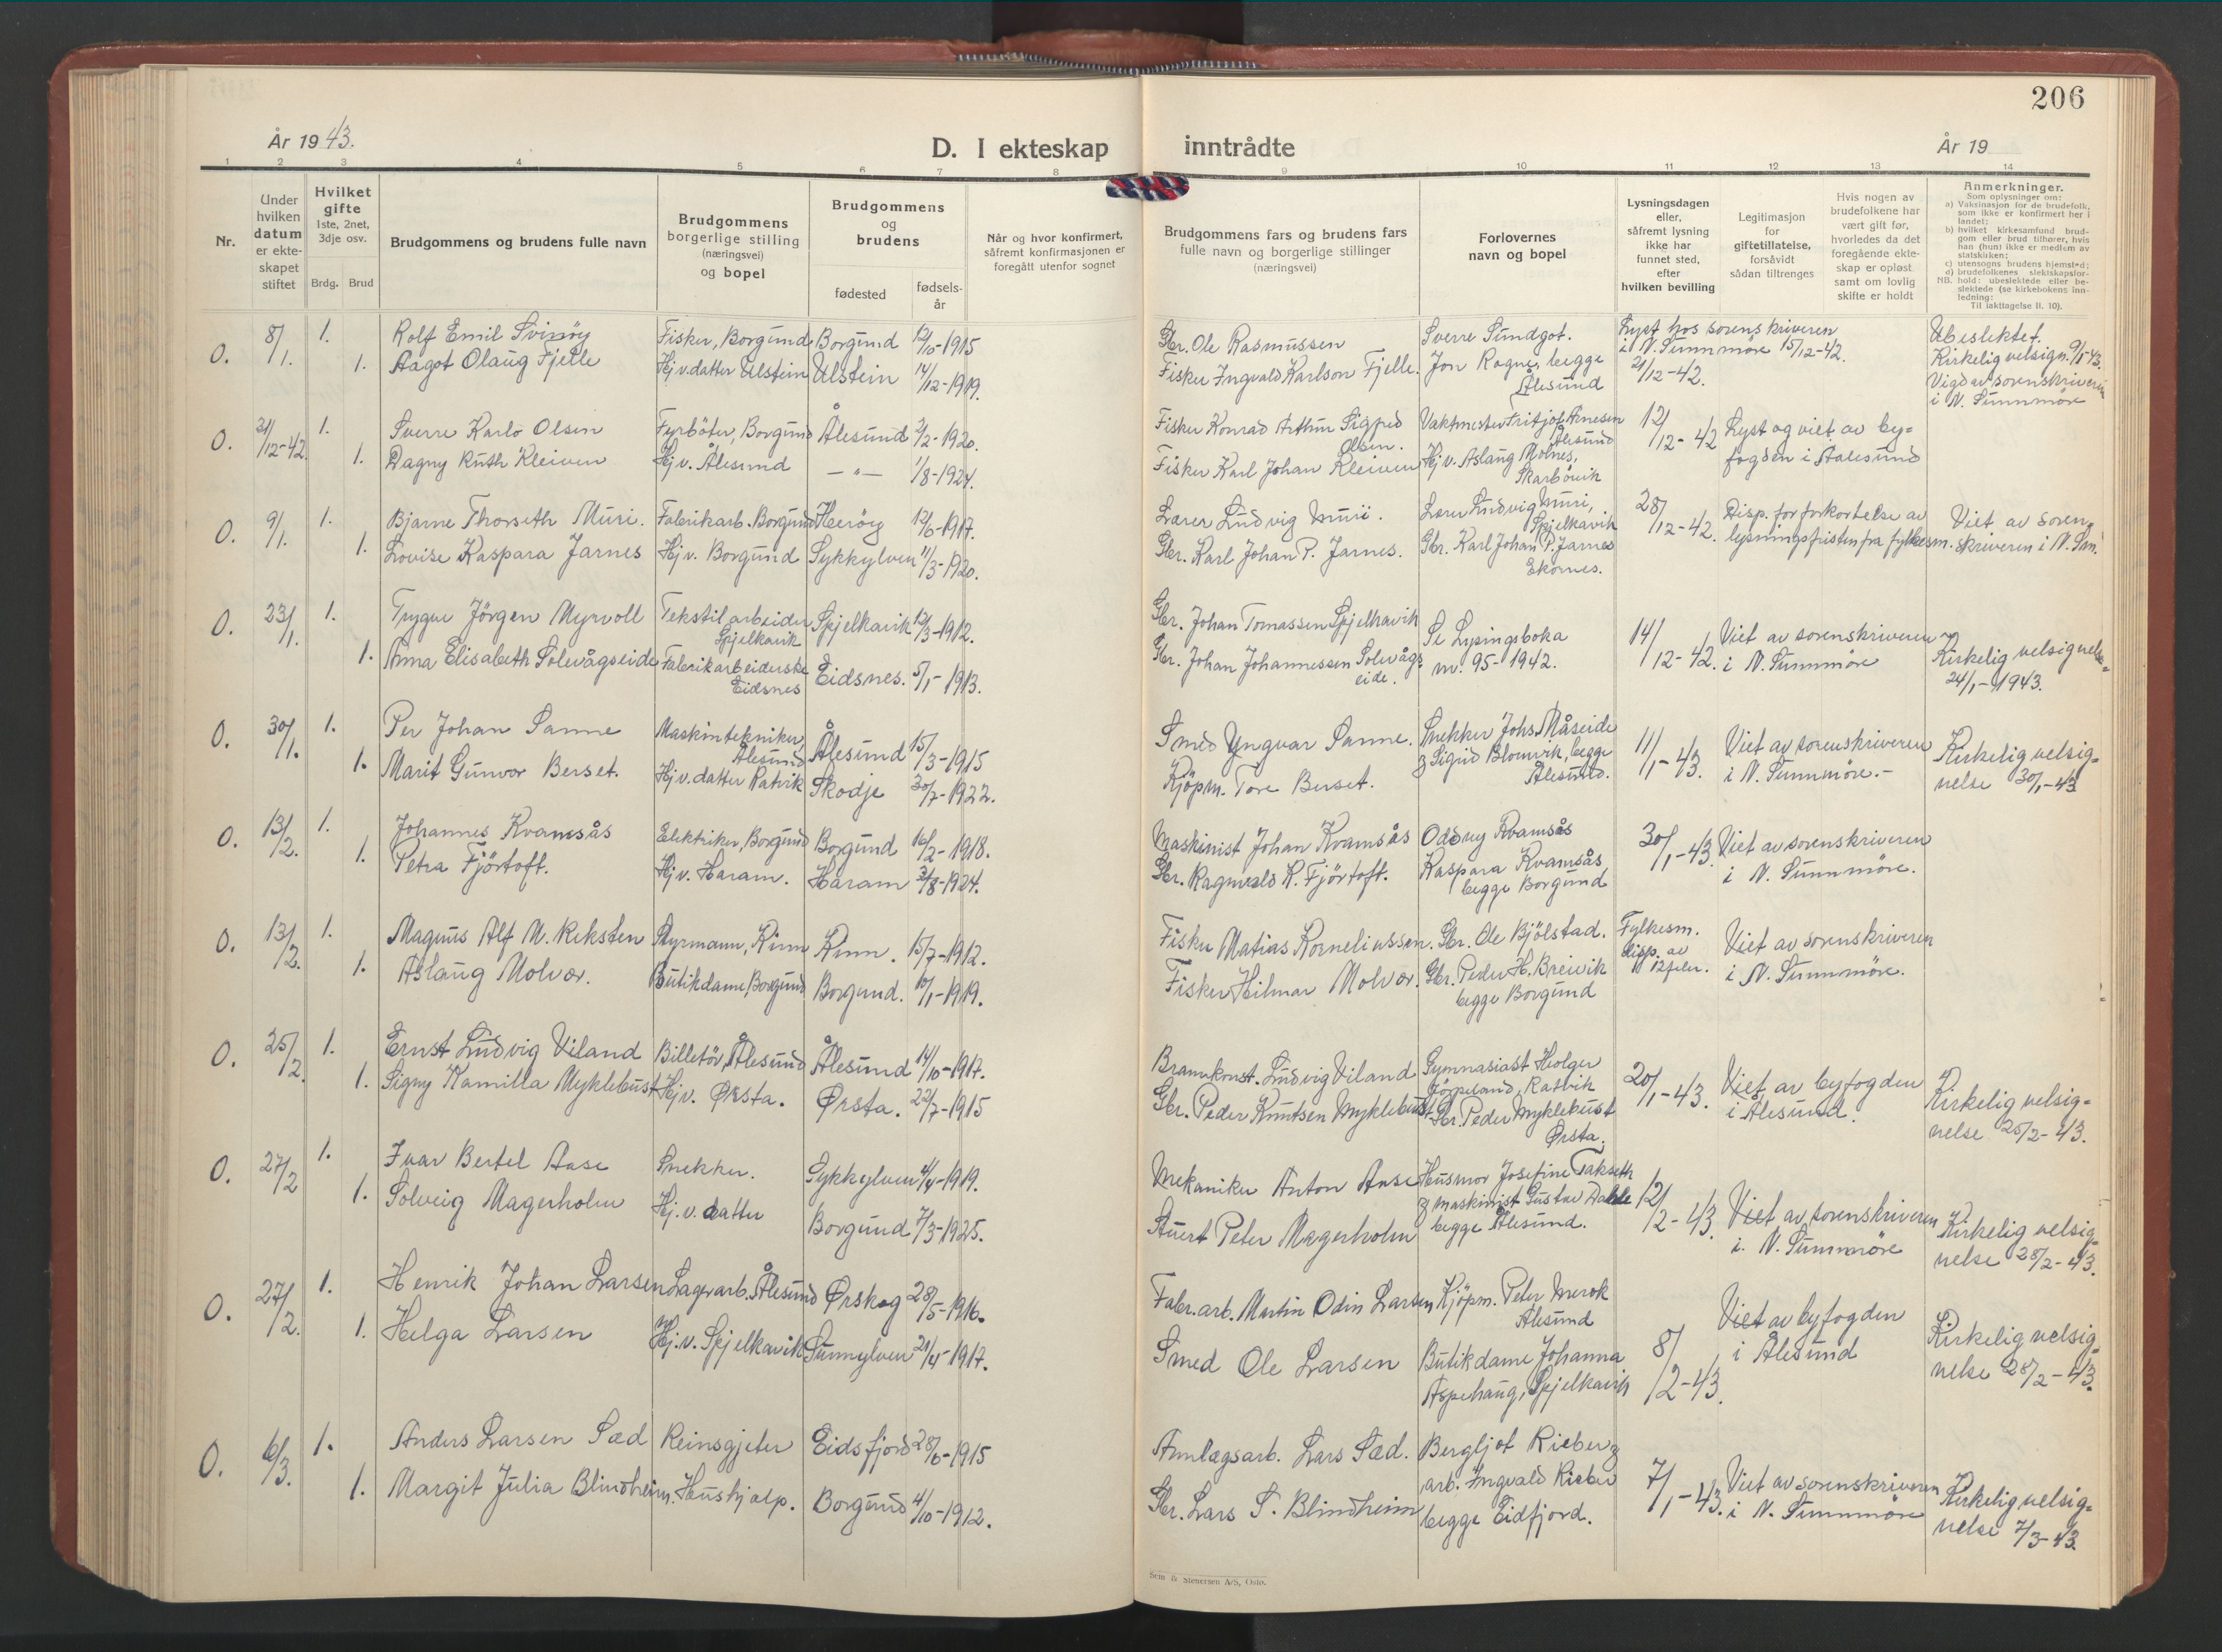 206
År 1943.
D. I ekteskap inntrådte
År 19
1 2 3 4 5 6 7 8 9 10 11 12 13 14
Nr.
Under
hvilken
datum
er ekte-
skapet
stiftet
Hvilket
gifte
1ste, 2net,
3dje osv.
Brdg. Brud
Brudgommens og brudens fulle navn
Brudgommens
borgerlige stilling
(næringsvei)
og bopel
Brudgommens
og
brudens
fødested
fødsels-
år
Når og hvor konfirmert,
såfremt konfirmasjonen er
foregått utenfor sognet
Brudgommens fars og brudens fars
fulle navn og borgerlige stillinger
(næringsvei)
Forlovernes
navn og bopel
Lysningsdagen
eller,
såfremt lysning
ikke har
funnet sted,
efter
hvilken bevilling
Legitimasjon
for
giftetillatelse,
forsåvidt
sådan tiltrenges
Hvis nogen av
brudefolkene har
vært gift før,
hvorledes da det
foregående ekte-
skap er opløst
samt om lovlig
skifte er holdt
Anmerkninger.
Som oplysninger om:
a) Vaksinasjon for de brudefolk,
som ikke er konfirmert her i
landet;
b) hvilket kirkesamfund brud-
gom eller brud tilhører, hvis
han (hun) ikke er medlem av
statskirken;
c) utensogns brudens hjemsted;
d) brudefolkenes slektskapsfor-
hold: ubeslektede eller be-
slektede (se kirkebokens inn-
ledning:
NB. Til iakttagelse II. 10).
O. 8/1. 1. Rolf Emil Svinöy Fisker, Borgund Borgund 12/10-1915
1. Aagot Olaug Fjelle Hj.v. datter Ulstein Ulstein 14/12-1919.
Gbr. Ole Rasmussen Sverre Sundgot. Lyst hos sorenskriveren Ubeslektet.
Fisker Ingvald Karlson Fjelle. Jon Ragnes, begge i N. Sunnmöre 15/12-42. Kirkelig velsign. 9/1-43.
Ålesund 21/12-42. Vigd av sorenskriveren
i N. Sunnmöre
O. 21/12-42. 1. Sverre Karlo Olsen Fyrböter, Borgund Ålesund 2/2-1920.
1. Dagny Ruth Kleiven Hj.v. Ålesund — " — 1/8-1924.
Fisker Konrad Arthur Sigfred Vaktmester Fritjof Arnesen 12/12-42 Lyst og viet av by=
Olsen. Ålesund fogden i Aalesund
Fisker Karl Johan Kleiven Hj.v. Aslaug Molnes,
Skarbövik
O. 9/1. 1. Bjarne Thorseth Muri. Fabrikarb. Borgund Heröy 12/6-1917.
1. Lovise Kaspara Jarnes Hj.v. Borgund Sykkylven 11/3-1920.
Lærer Ludvig Muri. Lærer Ludvig Muri, 28/12-42. Disp. for forkortelse av Viet av soren
Spjelkavik lysningsfristen fra fylkesm. skriveren i N. Sun.
Gbr. Karl Johan P. Jarnes. Gbr. Karl Johan P. Jarnes
Ekornes.
O. 23/1. 1. Trygve Jörgen Myrvoll Tekstilarbeider Spjelkavik 12/3-1912.
Spjelkavik
1. Anna Elisabeth Solevågseide Fabrikarbeiderske Eidsnes. 5/1-1913.
Eidsnes
Gbr. Johan Tomassen Spjelkavik Se Lysingsboka 14/12-42. Viet av sorenskriveren Kirkelig velsignelse
Gbr. Johan Johannessen Solevågs= nr. 95-1942. i N. Sunnmöre 24/1-1943.
eide.
O. 30/1. 1. Per Johan Sanne Maskintekniker, Ålesund 15/3-1915
Ålesund
1. Marit Gunvor Berset. Hj.v. datter Ratvik Skodje 30/7-1922.
Smed Yngvar Sanne. Snekker Johs Måseide 11/1-43. Viet av sorenskriveren Kirkelig velsig=
& Sigrid Blomvik, begge i N. Sunnmöre.- nelse 30/1-43
Kjöpm. Tore Berset. Ålesund.
O. 13/2. 1. Johannes Kvamsås Elektriker, Borgund Borgund 16/2-1918.
1. Petra Fjörtoft. Hj.v. Haram. Haram 3/8-1924.
Maskinist Johan Kvamsås Oddny Kvamsås 30/1-43. Viet av sorenskriveren
Gbr. Ragnvald K. Fjörtoft. Kaspara Kvamsås i N. Sunnmöre.
begge Borgund
O. 13/2. 1. Magnus Alf M. Reksten Styrmann, Kinn Kinn. 15/7-1912.
1. Aslaug Molvær. Butikdame, Borgund Borgund. 10/1-1919.
Fisker Matias Korneliussen. Gbr. Ole Bjölstad. Fylkesm. Viet av sorenskriveren
disp. av
Fisker Hilmar Molvær. Gbr. Peder H. Breivik 12 febr. i N. Sunnmöre.
begge Borgund
O. 25/2. 1. Ernst Ludvig Viland Billetör, Ålesund Ålesund 14/10-1917.
1. Signy Kamilla Myklebust Hj.v. Ørsta. Ørsta. 22/7-1915
Brannkonst. Ludvig Viland Gymnasiast Holger 20/1-43. Viet av byfogden Kirkelig velsig=
Jörpeland, Ratvik i Ålesund. nelse 25/2-43.
Gbr. Peder Knutsen Myklebust Gbr. Peder Myklebust
Ørsta.
O. 27/2 1. Ivar Bertel Aase Snekker. Sykkylven 4/4-1919.
1. Solveig Magerholm Hj.v. datter Borgund 7/3-1925.
Mekaniker Anton Aase Husmor Josefine Takseth 12/2-43. Viet av sorenskriveren Kirkelig velsig=
& maskinist Gustav Dahle i. N. Sunnmöre nelse 28/2-43.
Stuert Peter Magerholm begge Ålesund.
O. 27/2. 1. Henrik Johan Larsen Lagerarb. Ålesund Ørskog 28/5-1916.
1. Helga Larsen Hj.v. Spjelkavik Sunnylven 21/4-1917.
Fabr.arb. Martin Odin Larsen Kjöpm. Peter Merok 8/2-43. Viet av byfogden Kirkelig velsig=
Ålesund i Ålesund nelse 28/2-43.
Smed Ole Larsen Butikdame Johanna
Aspehaug, Spjelkavik
O. 6/3. 1. Anders Larsen Sæd Reinsgjeter Eidsfjord 28/6-1915
1. Margit Julia Blindheim. Hushjalp. Borgund 4/10-1912.
Annlagsarb. Lars Sæd. Bergljot Rieber & 7/1-43. Viet av sorenskriveren Kirkelig velsig=
arb. Ingvald Rieber i N. Sunnmöre nelse 7/3-43.
Gbr. Lars S. Blindheim begge Eidfjord.
Sem & Stenersen A/S, Oslo.